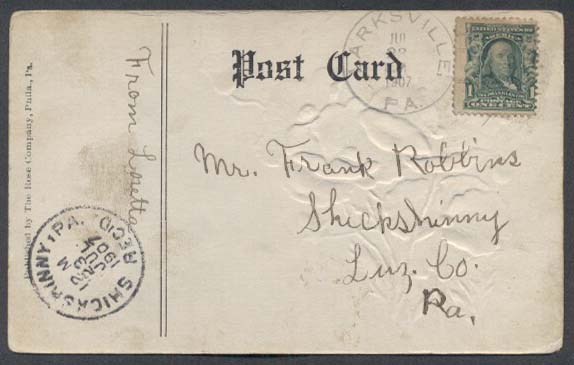 Post Card
ARKSVILLE,
1907
PA.
UNITED STATES OF AMERICA
1 1
ONE CENT
From Loretta
Mr. Frank Robbins
Shickshinny
Luz. Co.
Pa.
Published by The Rose Company, Phila., Pa.
SHICKSHINNY, PA. REC'D.
JUL
23
1907